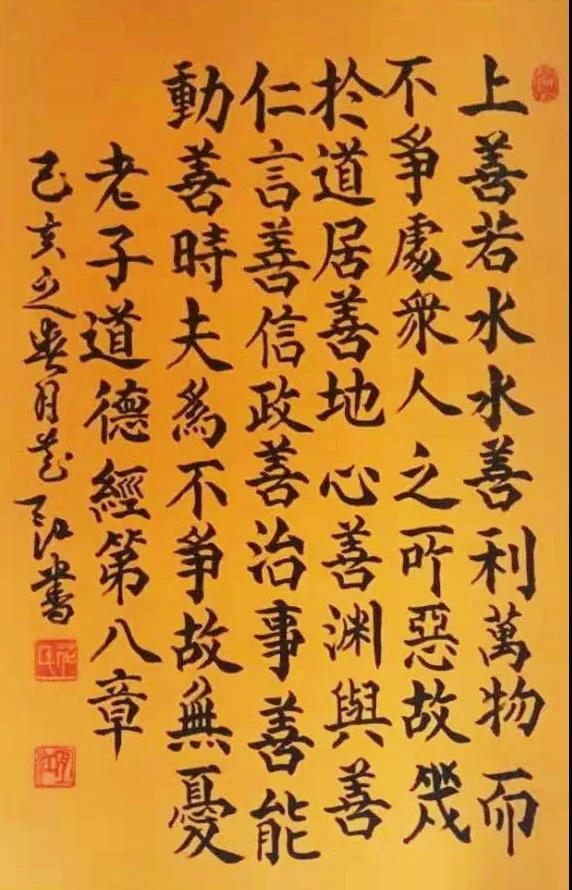 上善若水水善利萬物而
不爭處衆人之所惡故幾
於道居善地心善渊與善
仁言善信政善治事善能
動善時夫為不爭故無憂
老子道德經第八章
己亥之春月江書